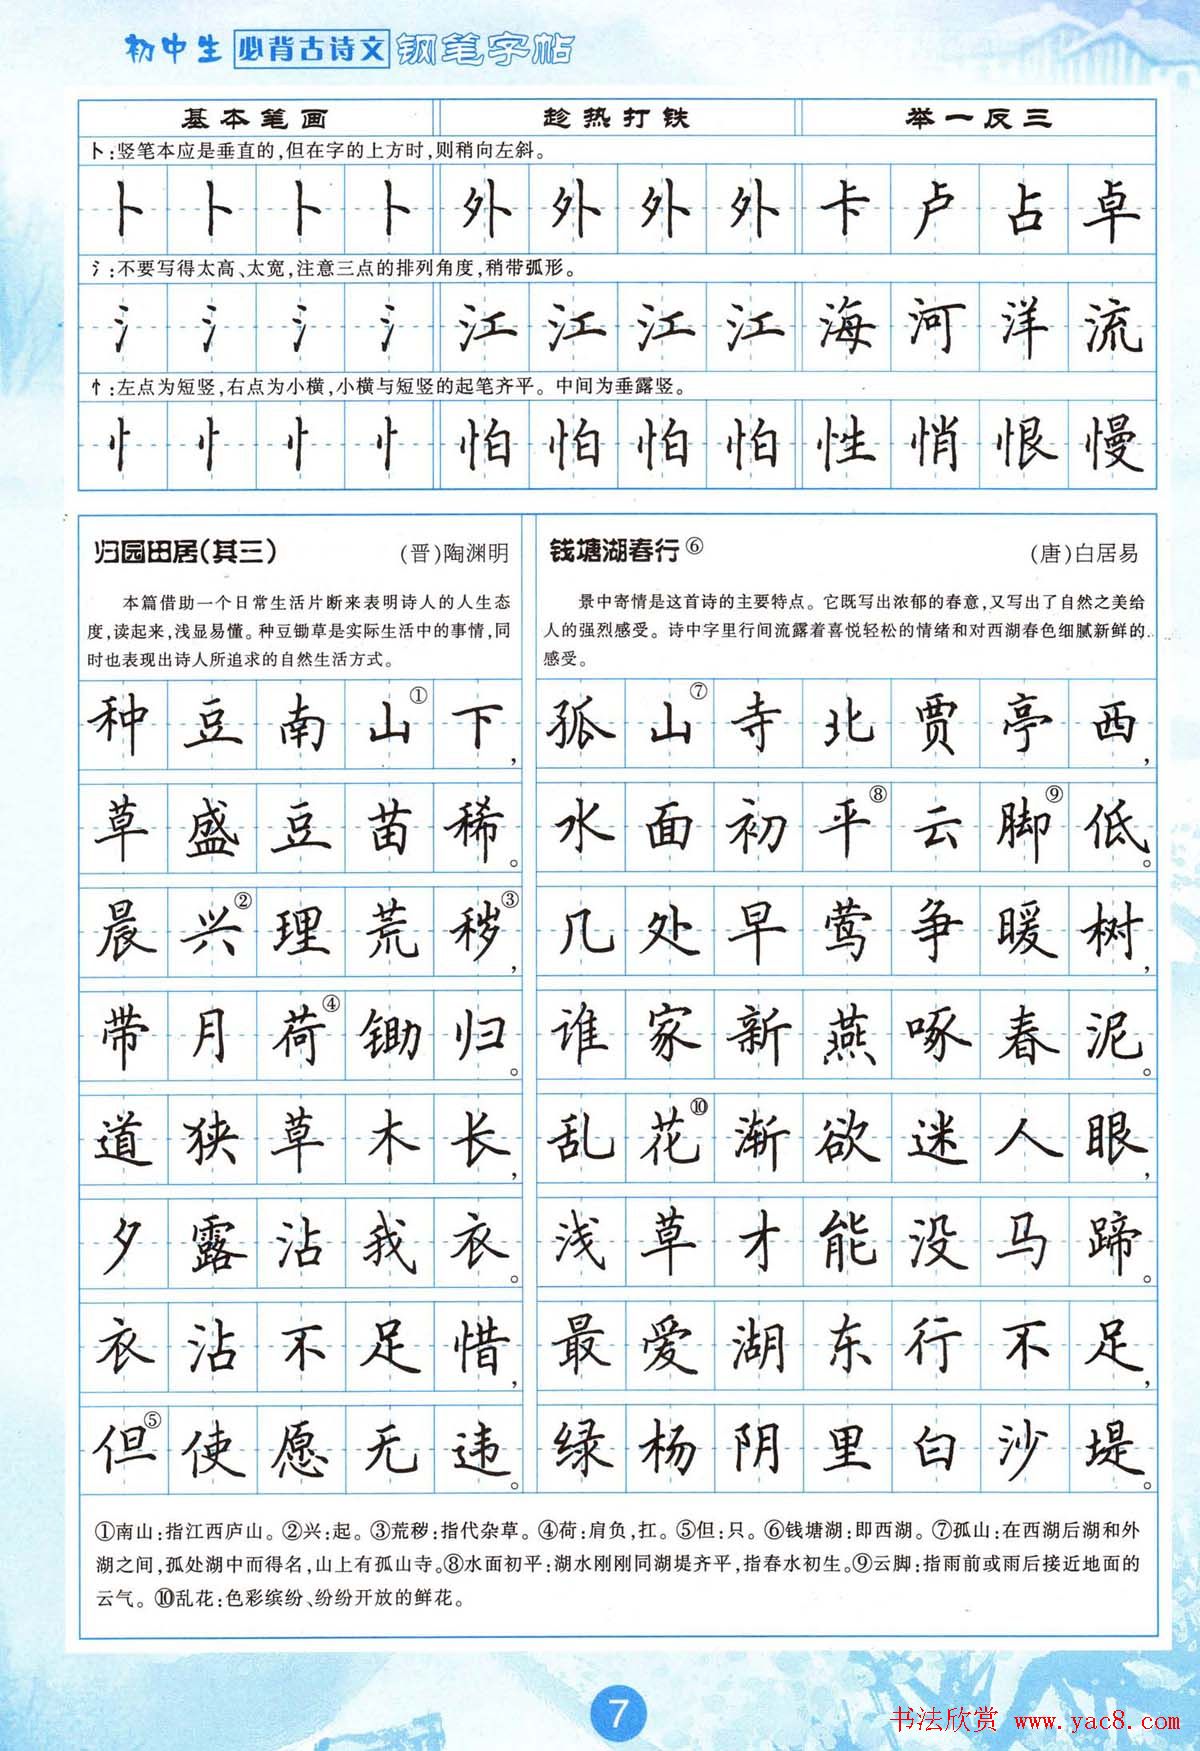 初中生 必背古诗文 钢笔字帖
基本笔画 趁热打铁 举一反三
卜:竖笔本应是垂直的,但在字的上方时,则稍向左斜。
卜 卜 卜 卜 外 外 外 外 卡 卢 占 卓
氵:不要写得太高、太宽,注意三点的排列角度,稍带弧形。
氵 氵 氵 氵 江 江 江 江 海 河 洋 流
忄:左点为短竖,右点为小横,小横与短竖的起笔齐平。中间为垂露竖。
忄 忄 忄 忄 怕 怕 怕 怕 性 悄 恨 慢
归园田居(其三) (晋)陶渊明
本篇借助一个日常生活片断来表明诗人的人生态
度,读起来,浅显易懂。种豆锄草是实际生活中的事情,同
时也表现出诗人所追求的自然生活方式。
种豆南山①下,
草盛豆苗稀。
晨兴②理荒秽③,
带月荷④锄归。
道狭草木长,
夕露沾我衣。
衣沾不足惜,
但⑤使愿无违。
钱塘湖春行⑥ (唐)白居易
景中寄情是这首诗的主要特点。它既写出浓郁的春意,又写出了自然之美给
人的强烈感受。诗中字里行间流露着喜悦轻松的情绪和对西湖春色细腻新鲜的
感受。
孤山⑦寺北贾亭西,
水面初平⑧云脚⑨低。
几处早莺争暖树,
谁家新燕啄春泥。
乱花⑩渐欲迷人眼,
浅草才能没马蹄。
最爱湖东行不足,
绿杨阴里白沙堤。
①南山:指江西庐山。②兴:起。③荒秽:指代杂草。④荷:肩负,扛。⑤但:只。⑥钱塘湖:即西湖。⑦孤山:在西湖后湖和外
湖之间,孤处湖中而得名,山上有孤山寺。⑧水面初平:湖水刚刚同湖堤齐平,指春水初生。⑨云脚:指雨前或雨后接近地面的
云气。⑩乱花:色彩缤纷、纷纷开放的鲜花。
7
书法欣赏 www.yac8.com